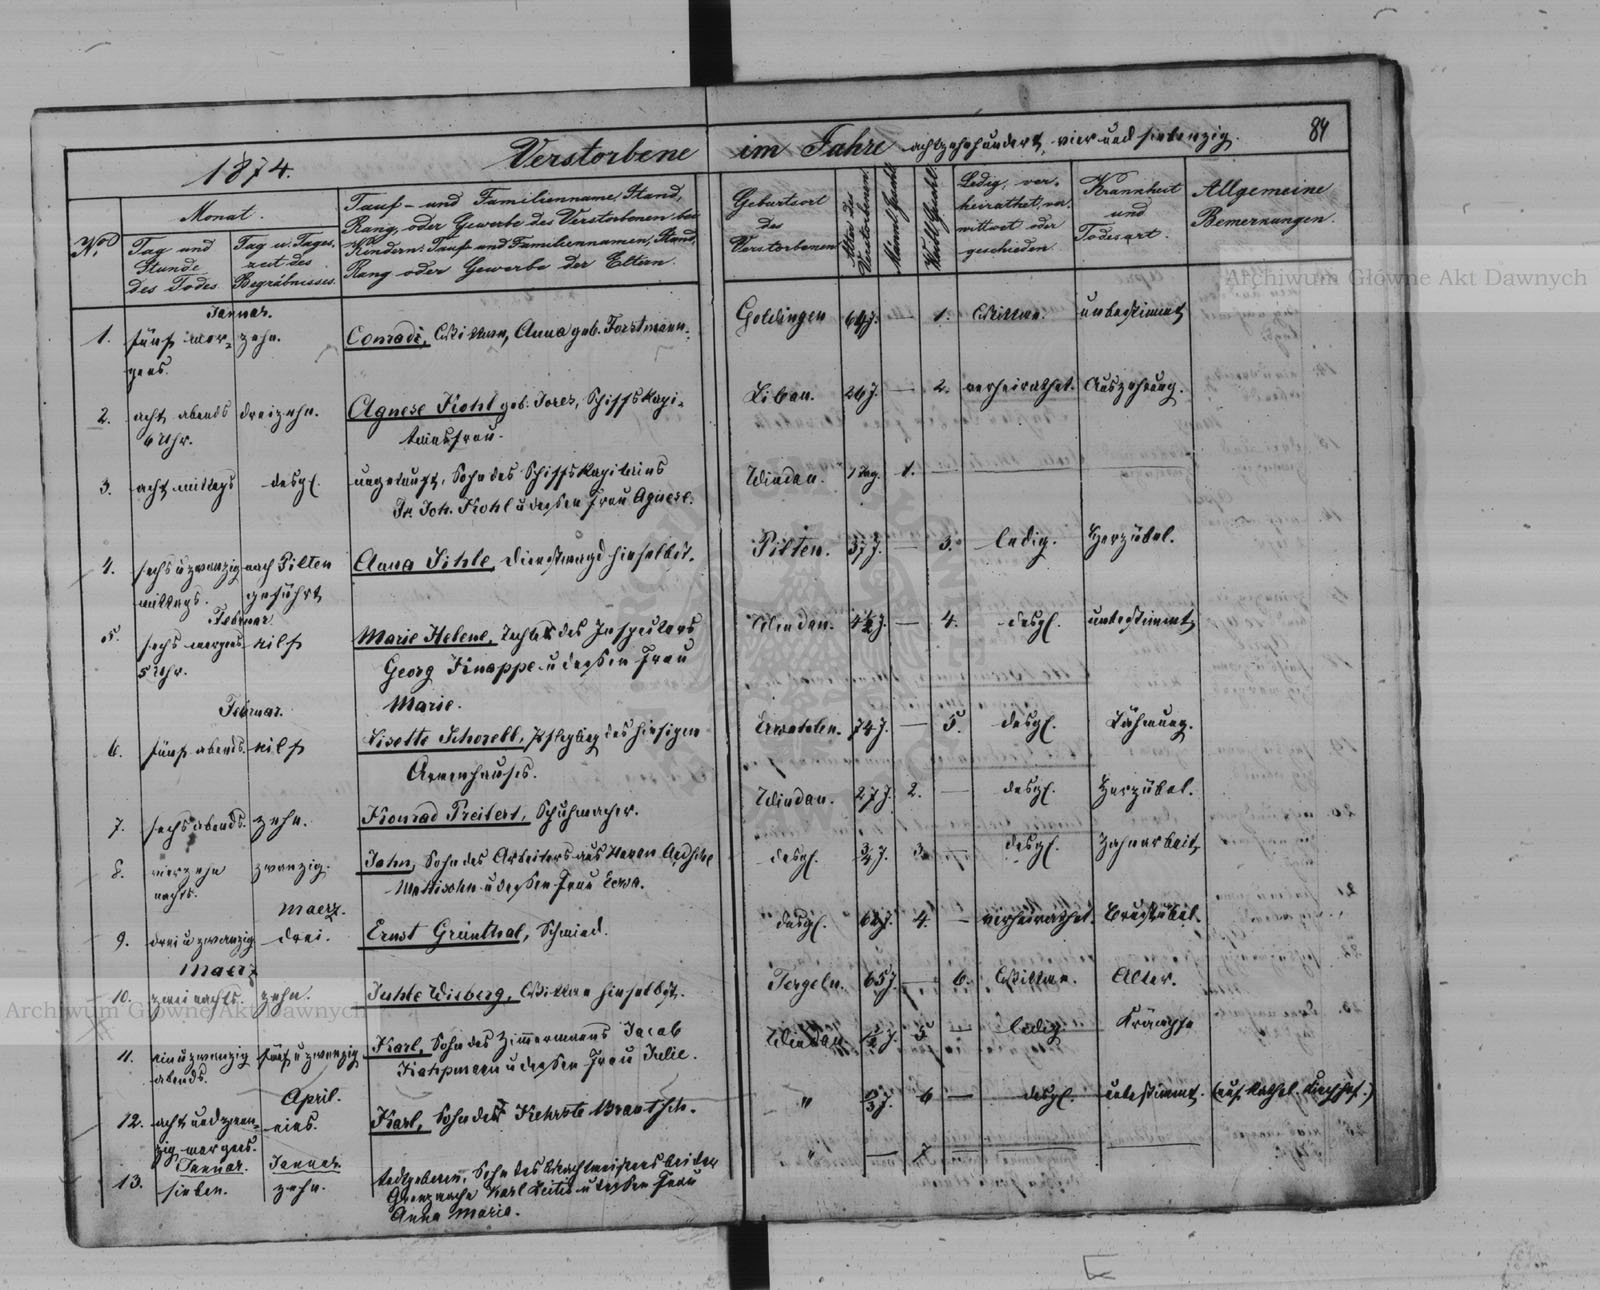 84
1874. Verstorbene im Jahre achtzehnhundert, vier und siebenzig.
No.
Monat.
Tag und Stunde des Todes
Tag u. Tageszeit des Begräbnisses.
Tauf- und Familienname, Stand,
Rang, oder Gewerbe des Verstorbenen bei
Kindern: Tauf- und Familiennamen, Stand,
Rang oder Gewerbe der Eltern.
Geburtsort des Verstorbenen
Alter des Verstorbenen.
Männl. Geschl.
Weibl. Geschl.
Ledig, verheirathet, verwittwet oder geschieden.
Krankheit und Todesart.
Allgemeine Bemerkungen.
Archiwum Główne Akt Dawnych
Januar.
1. fünf morgens. zehn. Conradi, Wittwe, Anna geb. Forstmann. Goldingen 1. Wittwe. unbestimmt
2. acht abends 6 Uhr. dreizehn. Agnese Kohl geb. Schiffskapitainsfrau. Libau. 26 J. — 2. verheirathet. Auszehrung.
3. acht mittags desgl. ungetauft, Sohn des Schiffskapitains
Fr. Joh. Kohl u dessen Frau Agnese. Windau. 1 Tag. 1. —
4. sechs u zwanzig mittags. nach Pilten geführt Anna Sihle, Dienstmagd hieselbst. Pilten. 37 J. — 3. ledig. Herzübel.
Februar
5. sechs morgens 5 Uhr. eilf Marie Helene, Tochter des Inspectors
Georg Knappe u dessen Frau
Marie. Windau. 4½ J. — 4. desgl. unbestimmt
Februar.
6. fünf abends. eilf Lisette Schorell, Pflegling des hiesigen
Armenhauses. Erwahlen. 74 J. — 5. desgl. Lähmung.
7. sechs abends. zehn. Konrad Preifert, Schuhmacher. Windau. 27 J. 2. — desgl. Herzübel.
8. vierzehn nachts. zwanzig. Jahn, Sohn des Arbeiters aus
Mattisohn u dessen Frau Eewa. desgl. ¾ J. 3. — desgl. Zahnarbeit
Maerz.
9. drei u zwanzig drei. Ernst Grünthal, Schmied. desgl. 4. — verheirathet. Brustübel.
Maerz
10. zwei nachts. zehn. Juhle Wieberg, Wittwe hieselbst. Tergeln. 65 J. — 6. Wittwe. Alter.
11. ein u zwanzig abends. fünf u zwanzig Karl, Sohn des Zimmermanns Jacob
u dessen Frau Julie. Windau 5 — ledig. Krämpfe
April.
12. acht und zwanzig morgens. eins. Karl, Sohn der Kehrste Brantsch. " 6 — desgl. unbestimmt. (auf kathol. Kirchhof.)
Januar. Januar.
13. sieben. zehn. todtgeboren, Sohn des Wachtmeisters bei der
Grenzwache Karl u dessen Frau
Anna Maria. " — 7 —
Archiwum Główne Akt Dawnych